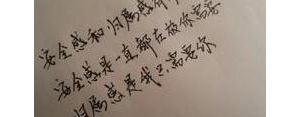 安全感和归属感
安全感是一直都在被你需要
归属感是我只需要你